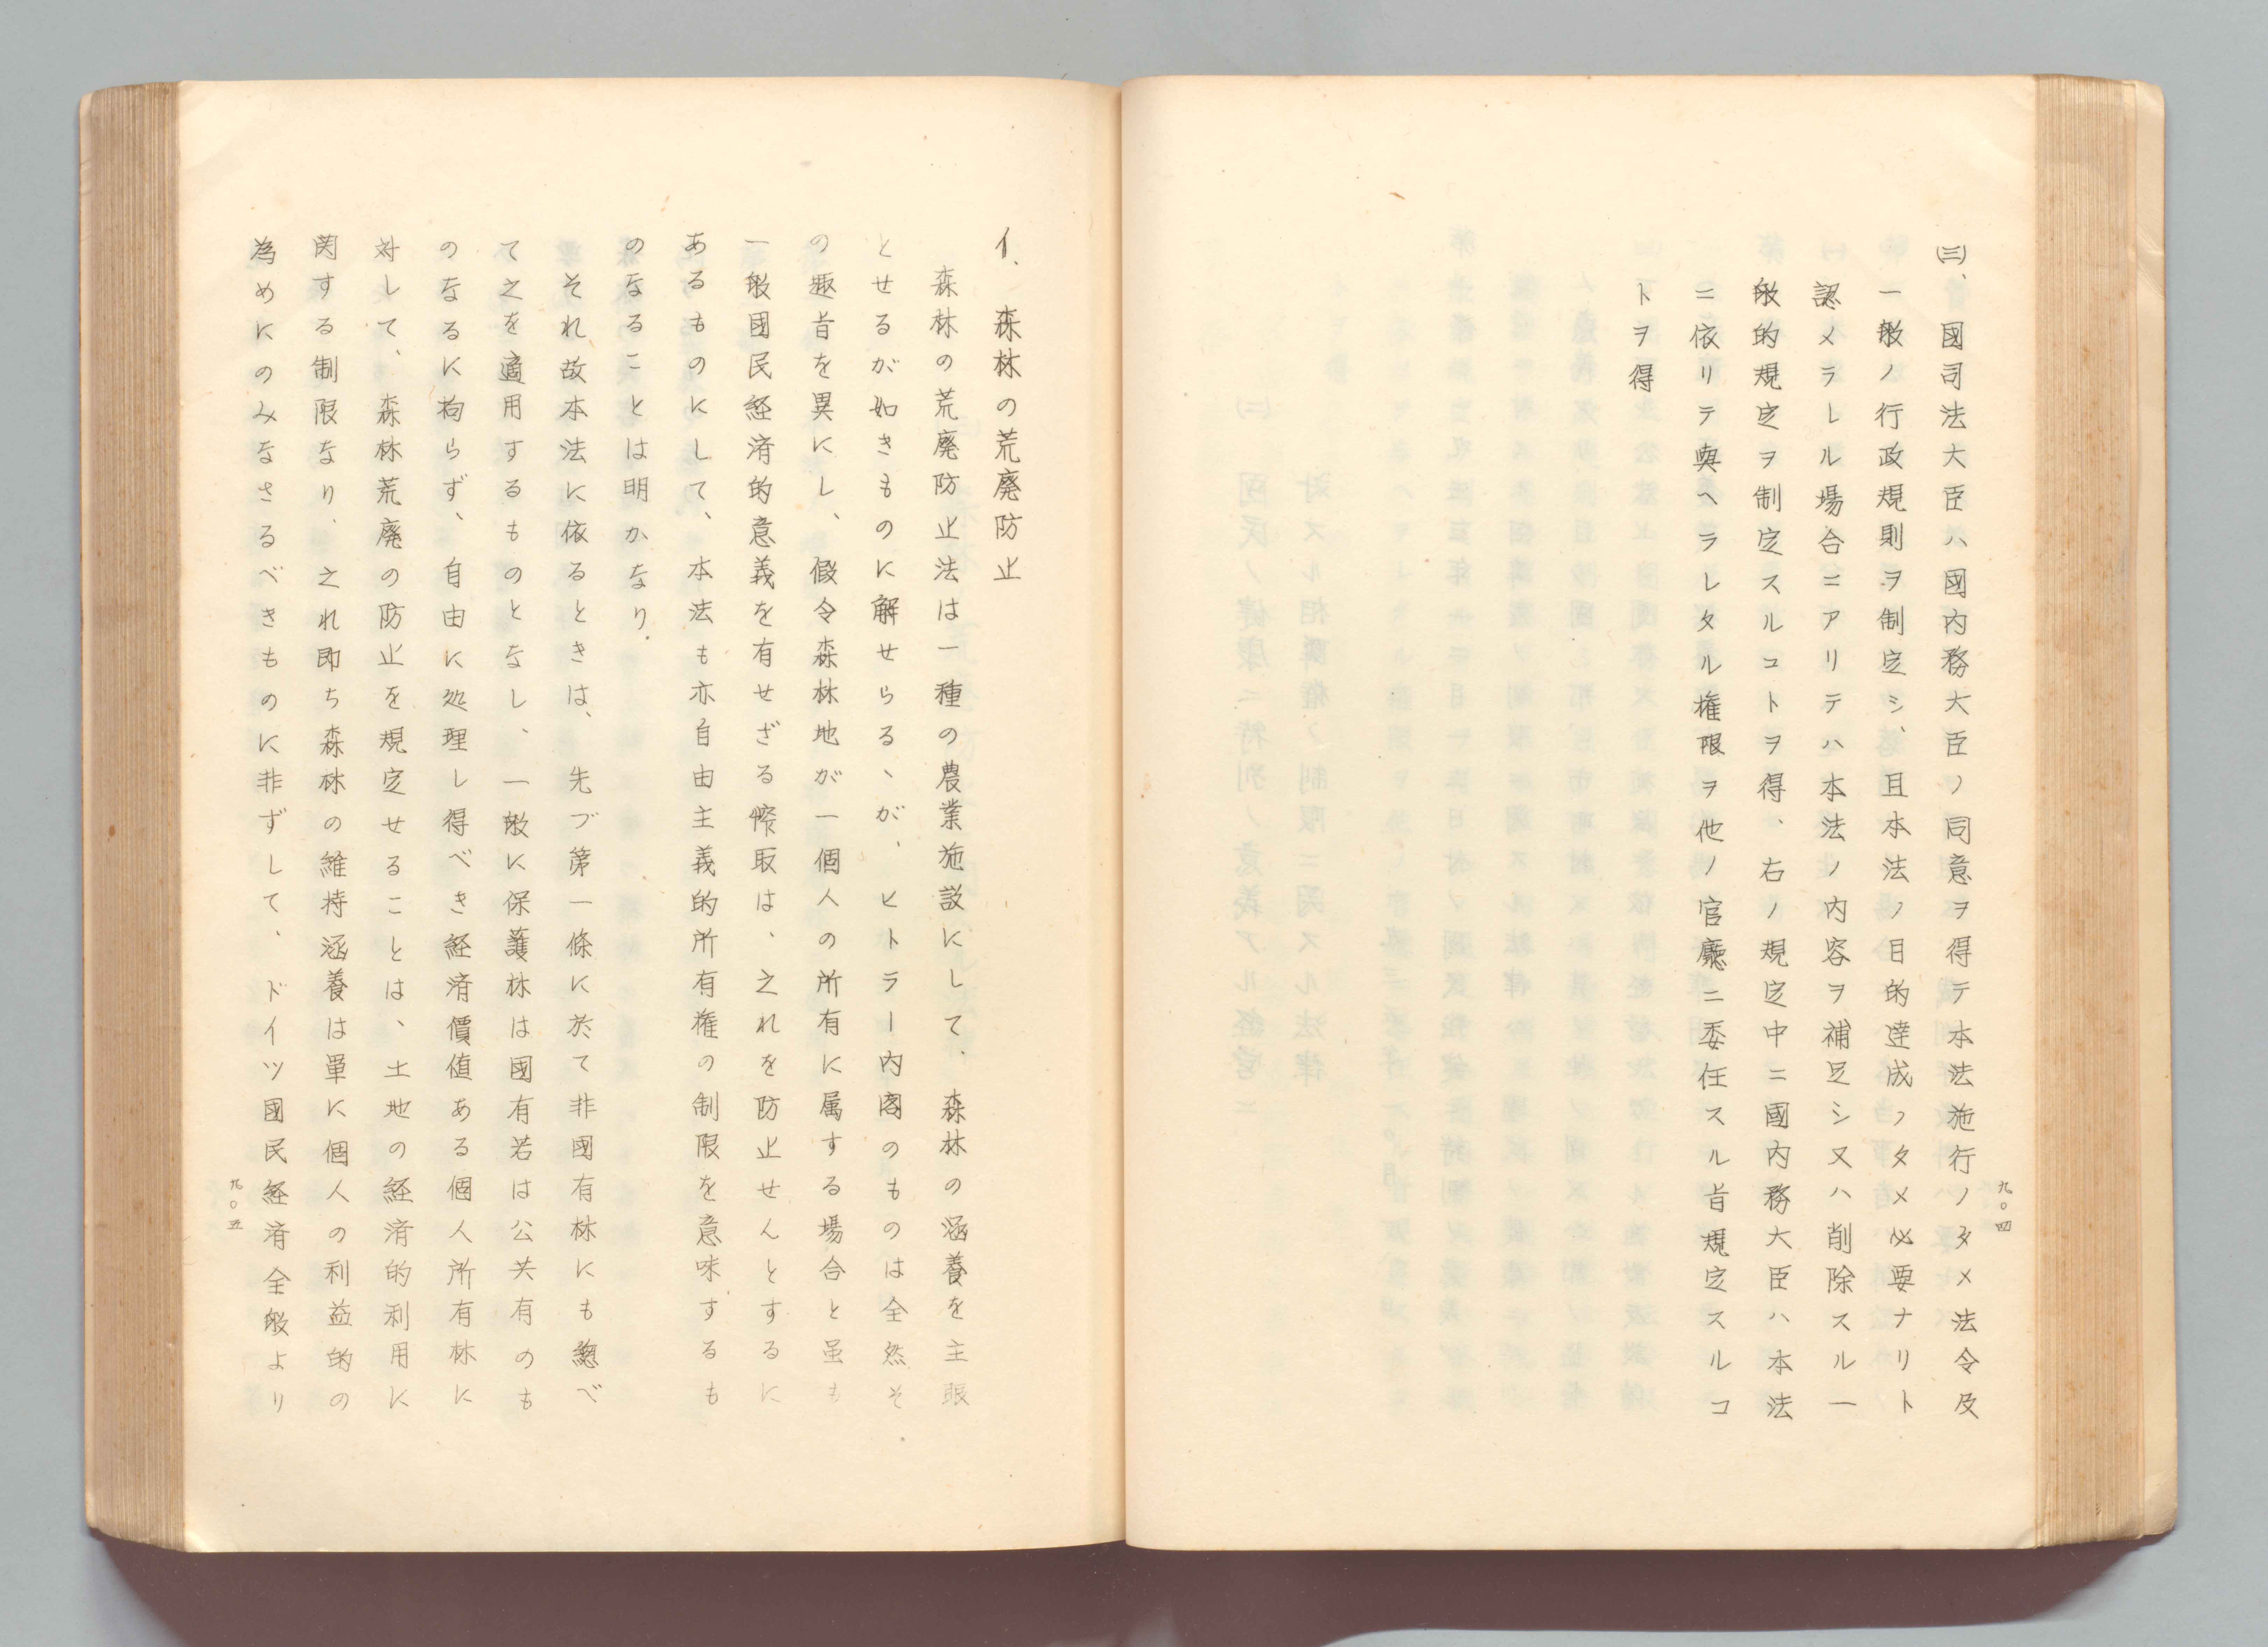 ㈢、國司法大臣ハ國内務大臣ノ同意ヲ得テ本法施行ノタメ法令及
一般ノ行政規則ヲ制定シ、且本法ノ目的達成ノタメ必要ナリト
認メラレル場合ニアリテハ本法ノ内容ヲ補足シ又ハ削除スル一
般的規定ヲ制定スルコトヲ得、右ノ規定中ニ國内務大臣ハ本法
ニ依リテ與ヘラレタル権限ヲ他ノ官廳ニ委任スル旨規定スルコ
トヲ得
九〇四
イ、森林の荒廃防止
森林の荒廃防止法は一種の農業施設にして、森林の涵養を主眼
とせるが如きものに解せらるゝが、ヒトラー内閣のものは全然そ
の趣旨を異にし、假令森林地が一個人の所有に属する場合と虽も
一般國民経済的意義を有せざる搾取は、之れを防止せんとするに
あるものにして、本法も亦自由主義的所有権の制限を意味するも
のなることは明かなり.
それ故本法に依るときは、先づ第一條に於て非國有林にも總べ
て之を適用するものとなし、一般に保護林は國有若は公共有のも
のなるに拘らず、自由に処理し得べき経済價値ある個人所有林に
対して、森林荒廃の防止を規定せることは、土地の経済的利用に
関する制限なり、之れ即ち森林の維持涵養は單に個人の利益的の
為めにのみなさるべきものに非ずして、ドイツ國民経済全般より
九〇五